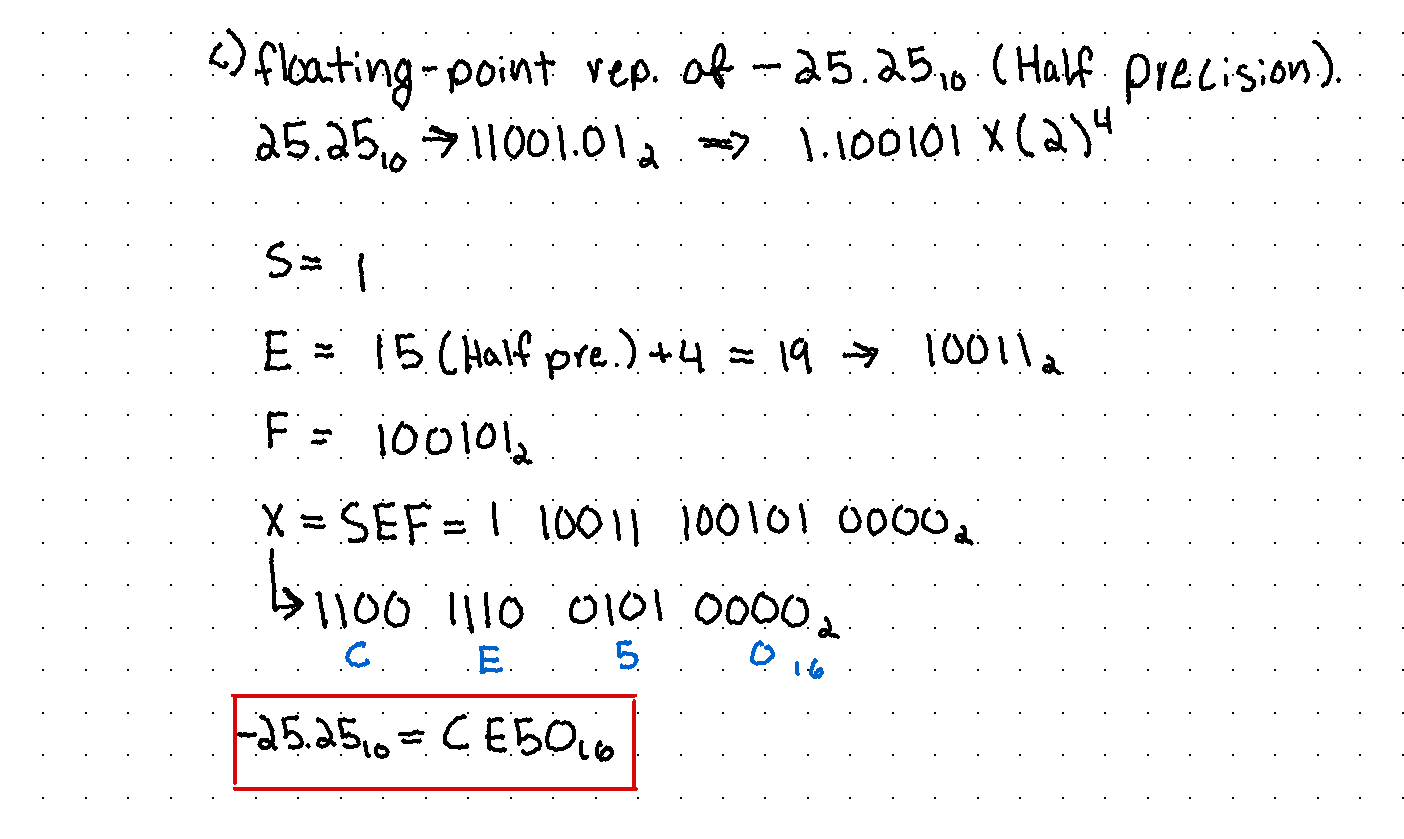 c) floating-point rep. of -25.25₁₀ (Half precision).
25.25₁₀ → 11001.01₂ => 1.100101 X (2)⁴
S = 1
E = 15 (Half pre.) + 4 = 19 → 10011₂
F = 100101₂
X = SEF = 1 10011 100101 0000₂
↳ 1100 1110 0101 0000₂
C E 5 0₁₆
-25.25₁₀ = CE50₁₆